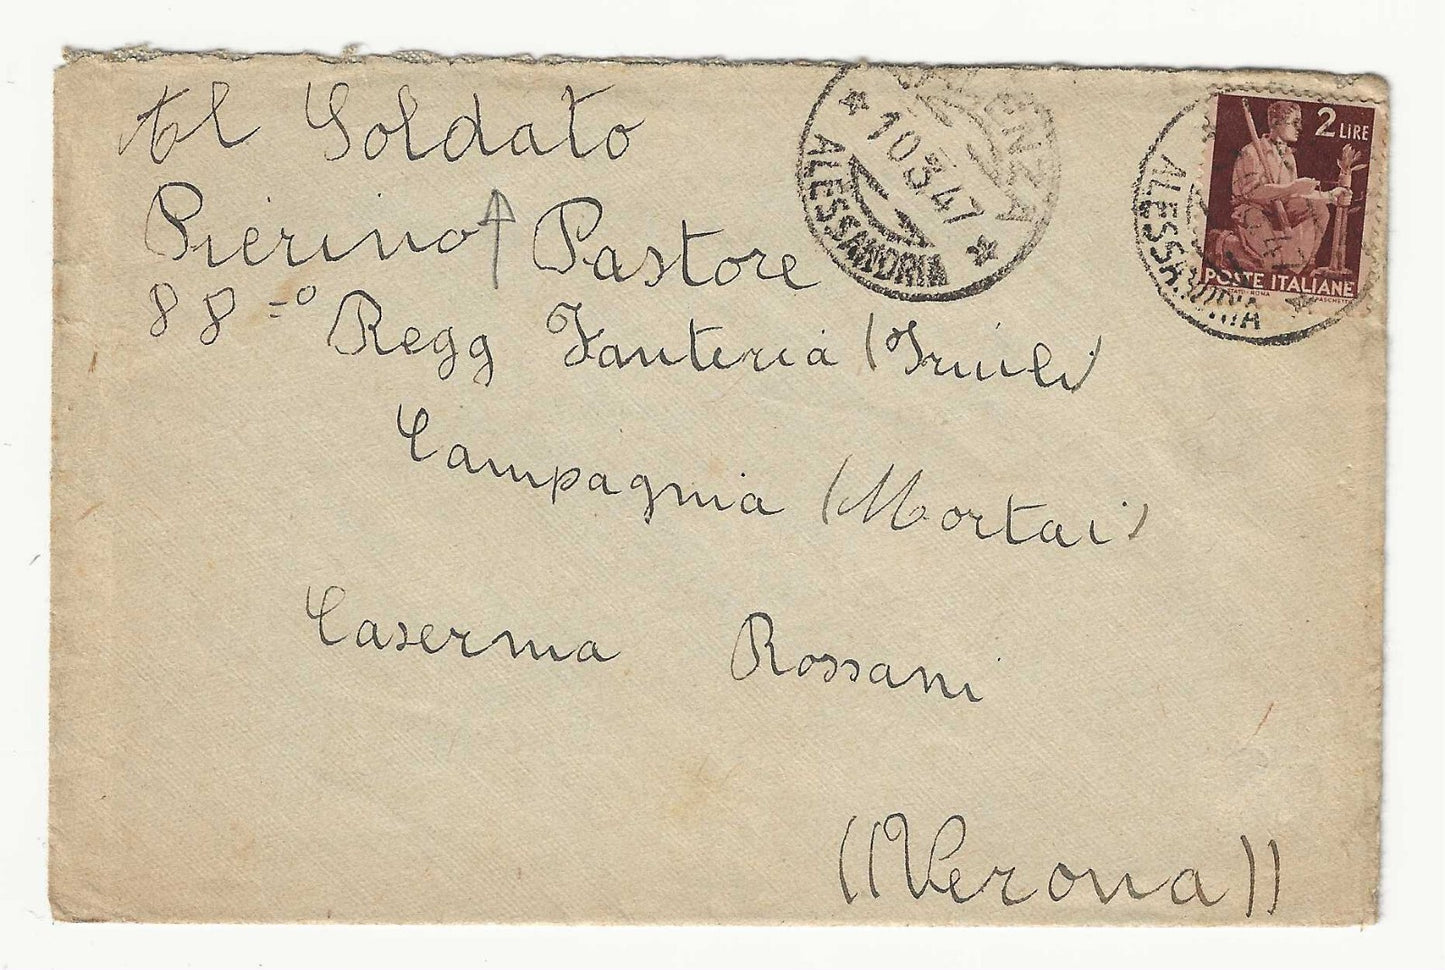 Al Soldato
Pierino Pastore
88=º Regg Fanteria (Friuli)
Campagnia (Mortai)
Caserma Rossani
((Verona))
VALENZA
* 10.3.47 *
ALESSANDRIA
2 LIRE
POSTE ITALIANE
ALESSANDRIA